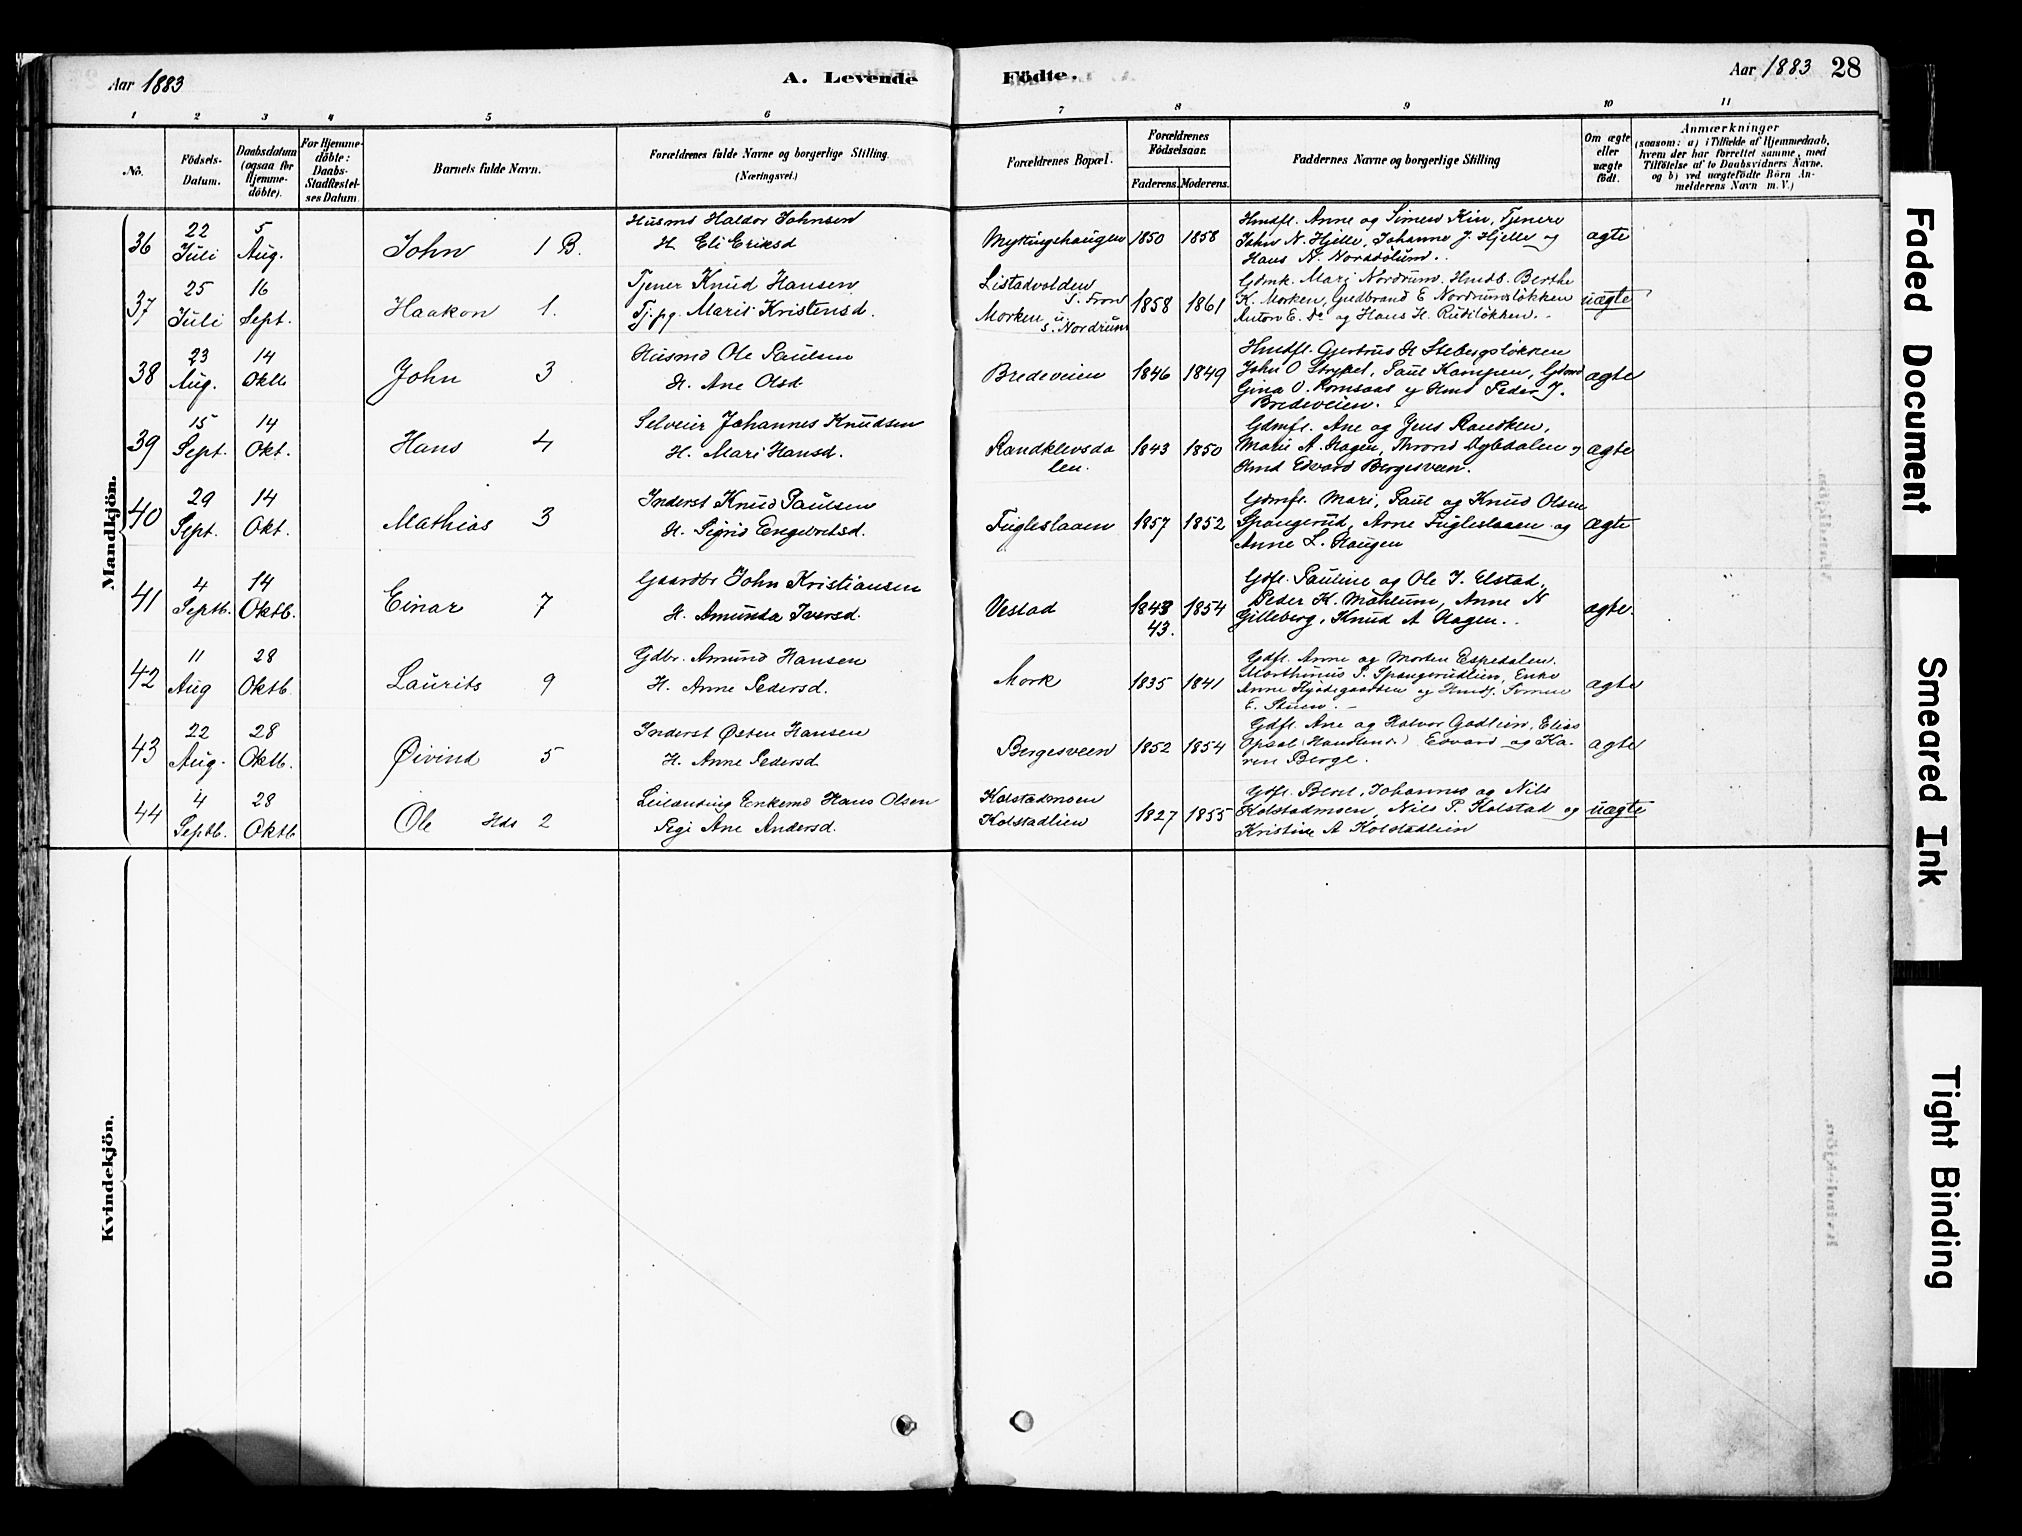 Aar 1883
A. Levende
Födte.
Aar 1883 28
1 2 3 4 5 6 7 8 9 10 11
No.
Födsels-
Datum.
Daabsdatum
(ogsaa för
Hjemme-
döbte).
For Hjemme-
döbte:
Daabs-
Stadfæstel-
ses Datum.
Barnets fulde Navn.
Forældrenes fulde Navne og borgerlige Stilling.
(Næringsvei.)
Forældrenes Bopæl.
Forældrenes
Födselsaar.
Faderens. Moderens.
Faddernes Navne og borgerlige Stilling
Om ægte
eller
uægte
födt.
Anmærkninger
(saasom: a) i Tilfælde af Hjemmedaab,
hvem der har forrettet samme, med
Tilföielse af to Daabsvidners Navne,
og b) ved uægtefödte Börn An-
melderens Navn m. V.)
Mandkjön.
36
22
Juli
5
Aug.
John 1 B.
Husmd Haldor Johnsen
H. Eli Eriksd
Myttingshaugen
1850 1858
Hmdfl. Anne og Simen Kin, Tjenere
John N. Hjelle, Johanne J. Hjelle og
Hans N. Nordsölum.
ægte
37
25
Juli
16
Sept.
Haakon 1.
Tjener Knud Hansen
Tj.pg. Marit Kristensd.
Listadvolden
S. Fron
Morken u.
S. Nordrum
1858 1861
Gdmk. Mari Nordrum. Hmdb. Berthe
K. Morken, Gudbrand E Nordrumsløkken
Anton E. Do og Hans H. Rudiløkken.
uægte
38
23
Aug.
14
Oktb.
John 3
Husmd Ole Paulsen
H. Ane Olsd.
Bredeveien
1846 1849
Hmdfl. Gjertrus H Stebergsløkken
John O Strypet, Paul Kampen, Gdmd
Gina O. Romsaas og Hmd Peder J.
Bredeveien.
ægte
39
15
Sept.
14
Okt.
Hans 4
Selveier Johannes Knudsen
H. Mari Hansd.
Randklevsda
len.
1843 1850
Gdmfl. Ane og Jens Randken,
Marie A. Hagen, Thrond Dybdalen og
Hmd Edvard Bergesveen.
ægte
40
29
Sept.
14
Okt.
Mathias 3
Inderst Knud Paulsen
H. Sigrid Engebretsd.
Fugleslaaen
1857 1852
Gdmfl. Mari, Paul og Knud Olsen
Spangerud, Arne Fugleslaaen og
Anne L. Haugen
ægte
41
4
Septb.
14
Oktb.
Einar 7
Gaardbr John Kristiansen
H. Amunda Iversd.
Vestad
1843 1854
43.
Gdfl. Pauline og Ole J. Elstad,
Peder K. Mæhlum, Anne N
Gilleberg, Knud A Hagen.
ægte.
42
11
Aug
28
Oktb.
Laurits 9
Gdbr. Amund Hansen
H. Anne Pedersd.
Mork
1835 1841
Gdfl. Anne og Morten Espedalen.
Morthinus P. Spangerudlien, Enke
Anne
E. Stuen.
ægte
43
22
Aug.
28
Oktb.
Øivind 5
Inderst Østen Hansen
H. Anne Pedersd.
Bergesveen
1852 1854
Gdfl. Ane og Halvor Godlien, Elias
Opsal (Handlende) Edvard og Ka-
ren Berge.
ægte
44
4
Septb.
28
Oktb
Ole Hds 2
Leilænding Enkemd Hans Olsen
Pige Ane Andersd.
Kolstadmoen
Kolstadlien
1827 1855
Gdfl. Berit, Johannes og Nils
Kolstadmoen, Nils P. Kolstad og
Kristine A Kolstadlien
uægte
Kvindekjön.
Faded Document
Smeared Ink
Tight Binding